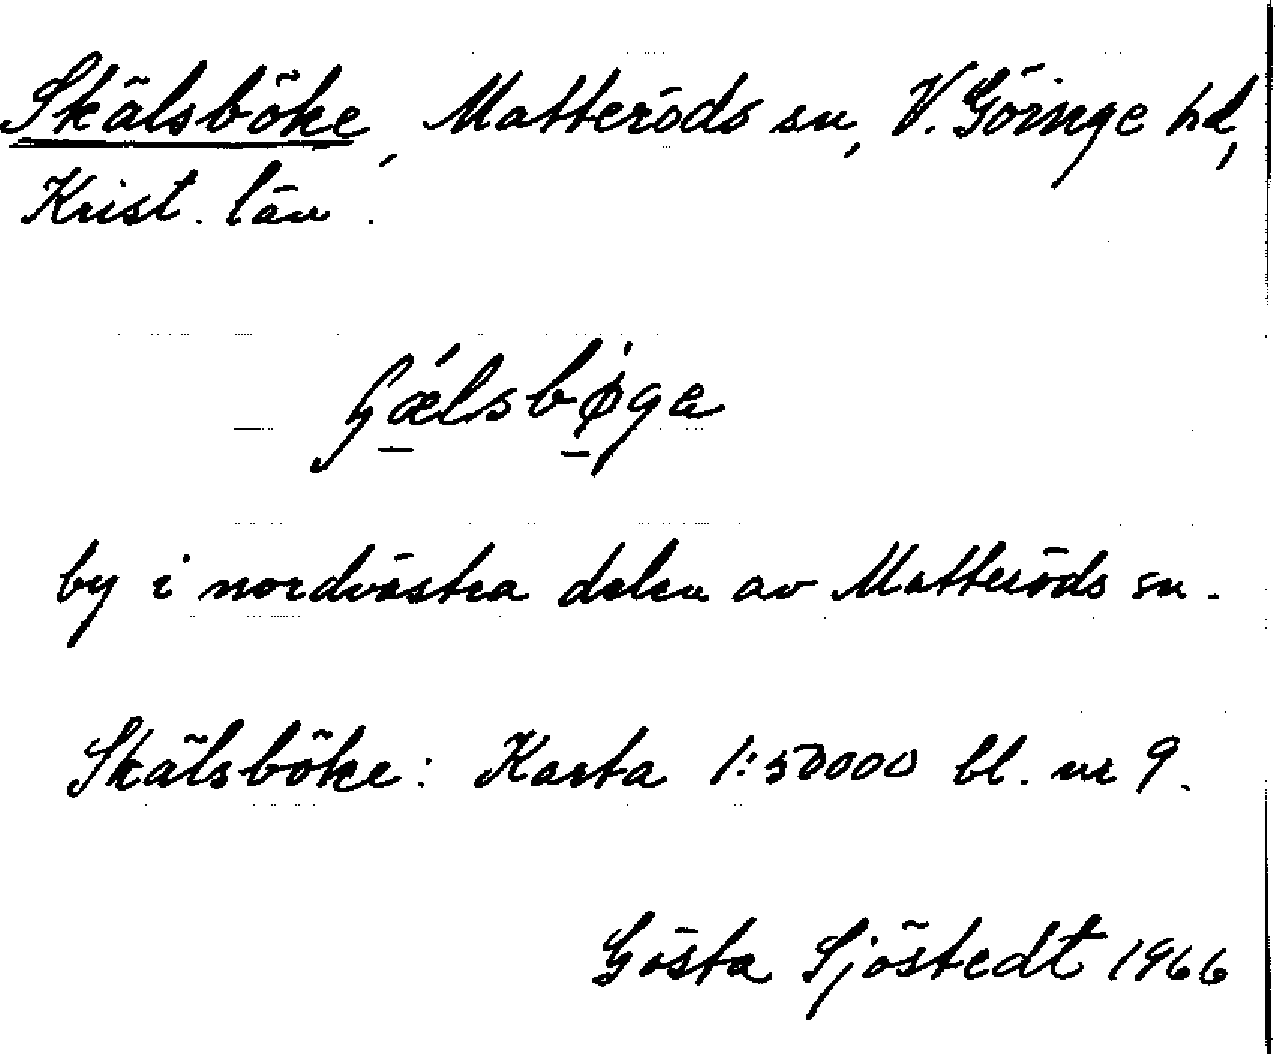 Skälsböke, Matteröds sn, V. Göinge hd,
Krist. län.
by i nordvästra delen av Matteröds sn.
Skälsböke: Karta 1:50000 bl. nr 9.
Gösta Sjöstedt 1966